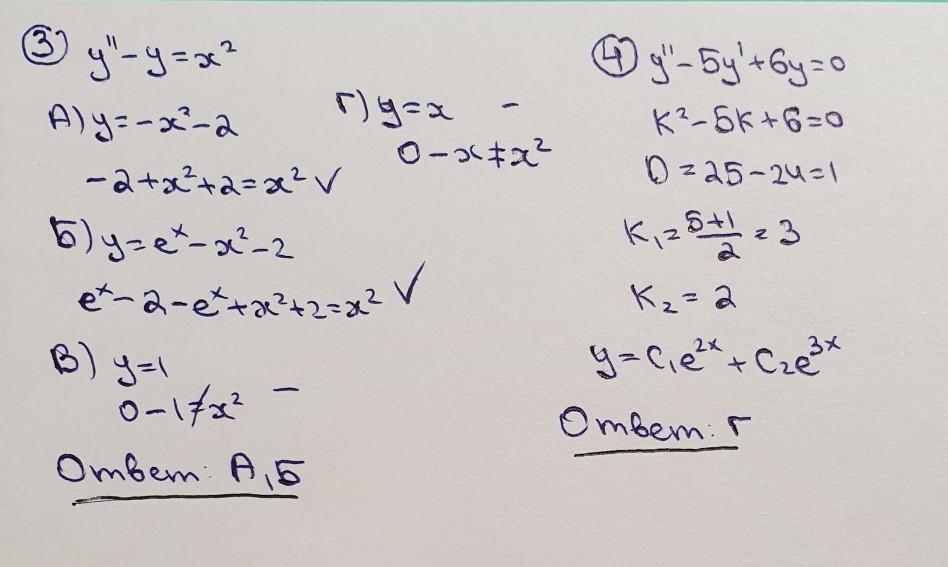 ③ y'' - y = x²
А) y = -x² - 2
-2 + x² + 2 = x² ✓
Б) y = eˣ - x² - 2
eˣ - 2 - eˣ + x² + 2 = x² ✓
В) y = 1
0 - 1 ≠ x² -
Г) y = x -
0 - x ≠ x²
Ответ: А, Б
④ y'' - 5y' + 6y = 0
K² - 5K + 6 = 0
D = 25 - 24 = 1
K₁ = (5+1)/2 = 3
K₂ = 2
y = C₁e²ˣ + C₂e³ˣ
Ответ: Г